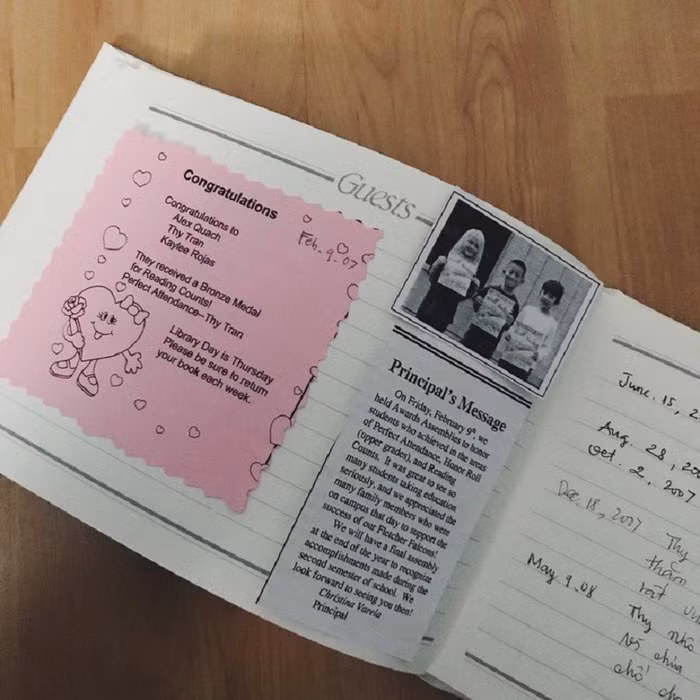 Guests
Congratulations
Congratulations to
Alex Quach
Thy Tran
Kaylee Rojas
Feb. 9. 07
They received a Bronze Medal
for Reading Counts!
Perfect Attendance–Thy Tran
Library Day is Thursday
Please be sure to return
your book each week.
Principal's Message
On Friday, February 9th, we
held Awards Assemblies to honor
students who achieved in the areas
of Perfect Attendance, Honor Roll
(upper grades), and Reading
Counts. It was great to see so
many students taking education
seriously, and we appreciated the
many family members who were
on campus that day to support the
success of our Fletcher Falcons!
We will have a final assembly
at the end of the year to recognize
accomplishments made during the
second semester of school. We
look forward to seeing you then!
Christina Varela
Principal
June. 15,
Aug. 28, 200
Oct. 2, 2007
Dec. 18, 2007 Thy
thăm
rất
May. 9. 08
Thy nhớ